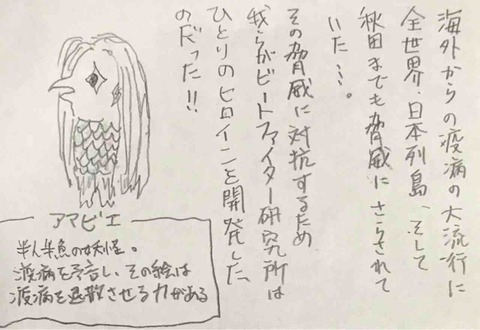 海外からの疫病の大流行に
全世界、日本列島、そして
秋田までも脅威にさらされて
いた…。
その脅威に対抗するため
我らがビートファイター研究所は
ひとりのヒロインを開発した
のだった!!
アマビエ
半人半魚の妖怪。
疫病を予言し、その絵は
疫病を退散させる力がある